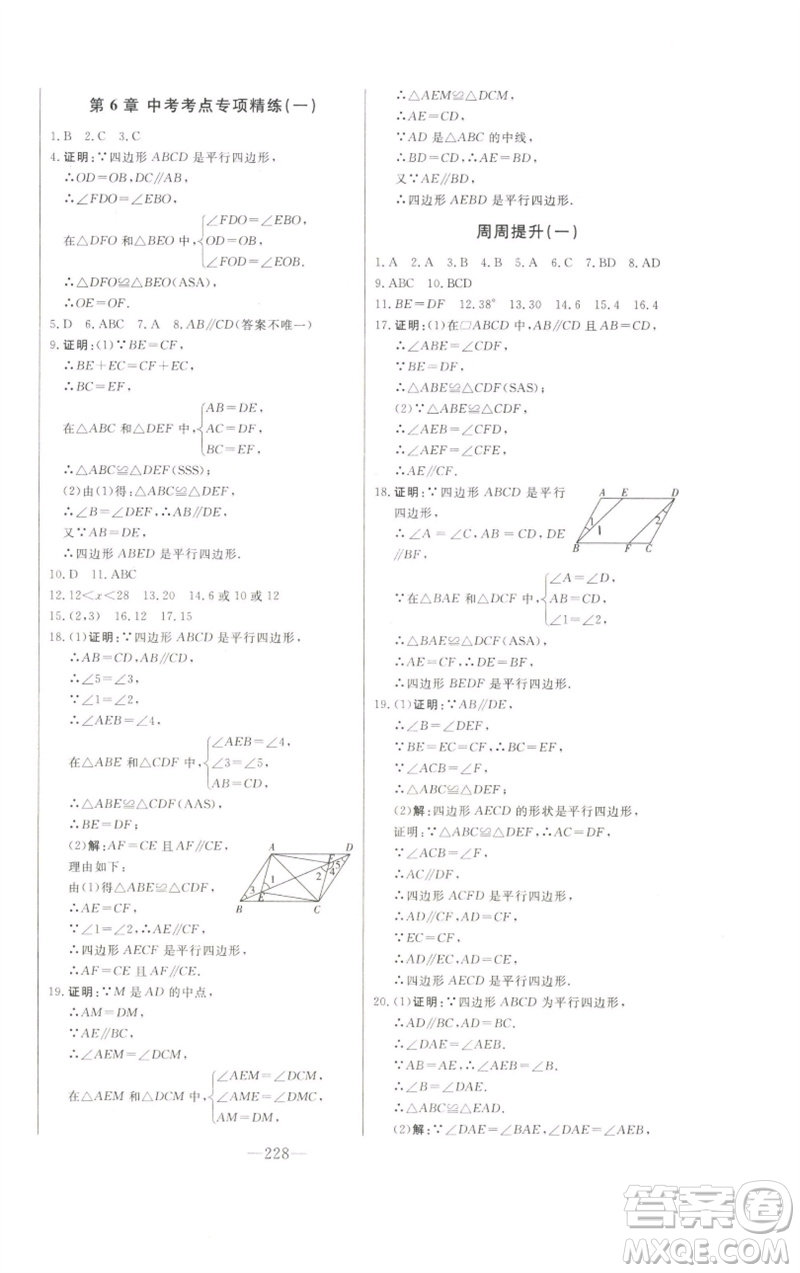 第 6 章 中考考点专项精练(一)
1.B 2.C 3.C
4.证明:∵四边形 ABCD 是平行四边形,
∴OD=OB,DC∥AB,
∴∠FDO=∠EBO,
在△DFO 和△BEO 中,
∠FDO=∠EBO,
OD=OB,
∠FOD=∠EOB.
∴△DFO≌△BEO(ASA),
∴OE=OF.
5.D 6.ABC 7.A 8.AB∥CD(答案不唯一)
9.证明:(1)∵BE=CF,
∴BE+EC=CF+EC,
∴BC=EF,
在△ABC 和△DEF 中,
AB=DE,
AC=DF,
BC=EF,
∴△ABC≌△DEF(SSS);
(2)由(1)得:△ABC≌△DEF,
∴∠B=∠DEF,
∴AB∥DE,
又∵AB=DE,
∴四边形 ABED 是平行四边形.
10.D 11.ABC
12.12<x<28 13.20 14.6 或 10 或 12
15.(2,3) 16.12 17.15
18.(1)证明:∵四边形 ABCD 是平行四边形,
∴AB=CD,AB∥CD,
∴∠5=∠3,
∵∠1=∠2,
∴∠AEB=∠4,
在△ABE 和△CDF 中,
∠AEB=∠4,
∠3=∠5,
AB=CD,
∴△ABE≌△CDF(AAS),
∴BE=DF;
(2)解:AF=CE 且 AF∥CE
理由如下:
由(1)得△ABE≌△CDF,
∴AE=CF,
∵∠1=∠2,
∴AE∥CF,
∴四边形 AECF 是平行四边形,
∴AF=CE 且 AF∥CE.
A D
F
5
2
4
1
3
E
B C
19.证明:∵M 是 AD 的中点,
∴AM=DM,
∵AE∥BC,
∴∠AEM=∠DCM,
在△AEM 和△DCM 中,
∠AEM=∠DCM,
∠AME=∠DMC,
AM=DM,
∴△AEM≌△DCM,
∴AE=CD,
∵AD 是△ABC 的中线,
∴BD=CD=AE,
又∵AE∥BD,
∴四边形 AEBD 是平行四边形.
周周提升(一)
1.A 2.A 3.B 4.B 5.A 6.C 7.BD 8.AD
9.ABC 10.BCD
11.BE=DF 12.38° 13.30 14.6 15.4 16.4
17.证明:(1)在□ABCD 中,AB=CD 且 AB∥CD,
∴∠ABE=∠CDF,
∵BE=DF,
∴△ABE≌△CDF(SAS);
(2)∵△ABE≌△CDF,
∴∠AEB=∠CFD,
∴∠AEF=∠CFE,
∴AE∥CF.
18.证明:∵四边形 ABCD 是平行
四边形,
∴∠A=∠C,AB=CD,DE
∥BF,
A E D
2
1 1
B F C
∵在△BAE 和△DCF 中,
∠A=∠D,
AB=CD,
∠1=∠2,
∴△BAE≌△DCF(ASA),
∴AE=CF,∴DE=BF,
∴四边形 BEDF 是平行四边形.
19.(1)证明:∵AB∥DE,
∴∠B=∠DEF,
∵BE=EC=CF,
∴BC=EF,
∵∠ACB=∠F,
∴∠ACB=∠F;
(2)解:四边形 AECD 的形状是平行四边形,
证明:∵△ABC≌△DEF,∴AC=DF,
∵∠ACB=∠F,
∴AC∥DF,
∴四边形 ACFD 是平行四边形,
∴AD∥CF,AD=CF,
∵EC=CF,
∴AD∥EC,AD=CE,
∴四边形 AECD 是平行四边形.
20.(1)证明:∵四边形 ABCD 为平行四边形,
∴AD∥BC,AD=BC.
∴∠DAE=∠AEB.
∵AB=AE,∴∠AEB=∠B.
∴∠B=∠DAE.
∴△ABC≌△EAD.
(2)解:∵∠DAE=∠BAE,∠DAE=∠AEB,
—228—
答案卷
MXQE.COM